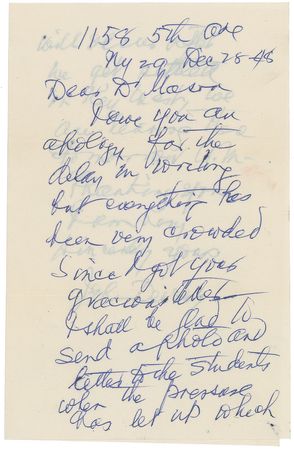 1158 5th Ave
Ny 29 Dec 28-48
Dear Dr Mason
I owe you an
apology for the
delay in writing
but everything has
been very crowded
since I got your
gracious letter
I shall be glad to
send a photo and
letter to the students
when the pressure
has let up which